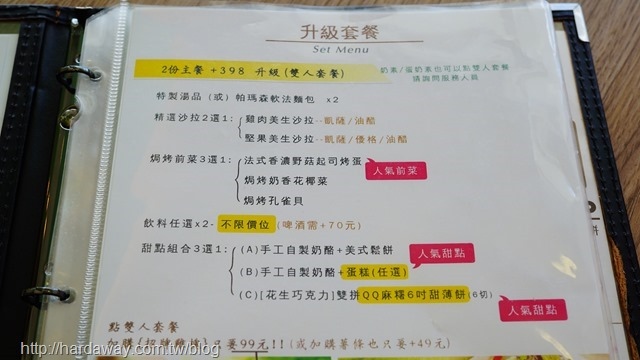 升級套餐
Set Menu
2份主餐 +398 升級(雙人套餐)
奶素/蛋奶素也可以點雙人套餐
請詢問服務人員
特製湯品 (或) 帕瑪森軟法麵包 x2
精選沙拉2選1: 雞肉美生沙拉--凱薩/油醋
堅果美生沙拉--凱薩/優格/油醋
焗烤前菜3選1: 法式香濃野菇起司烤蛋
人氣前菜
焗烤奶香花椰菜
焗烤孔雀貝
飲料任選x2- 不限價位 (啤酒需+70元)
甜點組合3選1: (A)手工自製奶酪+美式鬆餅
人氣甜點
(B)手工自製奶酪+蛋糕(任選)
(C)[花生巧克力]雙拼QQ麻糬6吋甜薄餅(6切)
人氣甜點
點雙人套餐
只要99元!! (或加購薯條也只要+49元)
http://hardaway.com.tw/blog